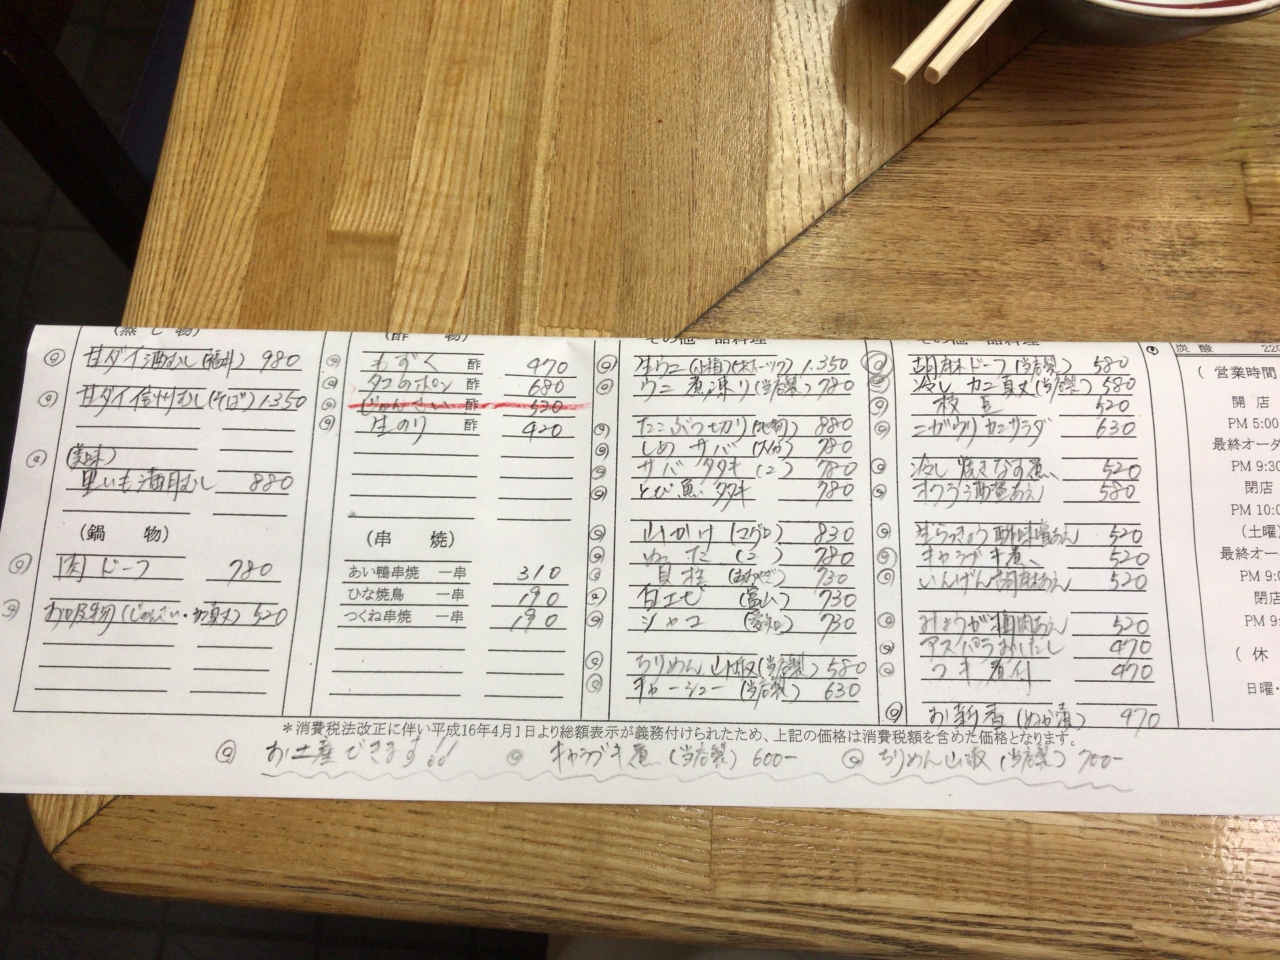 (蒸し物)
甘ダイ酒むし(福井) 980
甘ダイ信州むし(そば) 1.350
(美味)
里いも酒むし 880
(鍋 物)
肉ドーフ 780
お吸物(じゅんさい・カニ真丈) 520
(酢 物)
もずく 酢 470
タコのポン 酢 680
じゅんさい 酢 530
生のり 酢 420
(串 焼)
あい鴨串焼 一串 310
ひな焼鳥 一串 190
つくね串焼 一串 190
その他一品料理
生ウニ(小箱) 1.350
ウニ煮凍り(当店製) 780
たこぶつ切り 880
しめサバ 780
サバタタキ(〃) 780
とび魚タタキ 780
山かけ(マグロ) 830
ぬた(〃) 780
貝柱 730
白エビ(富山) 730
シャコ 730
ちりめん山椒(当店製) 580
チャーシュー(当店製) 630
その他一品料理
胡麻ドーフ(当店製) 580
冷しカニ真丈(当店製) 580
枝豆 520
ニガウリカニサラダ 630
冷し焼きなす煮 520
オクラ 580
生らっきょう酢味噌あえ 520
キャラブキ煮 520
いんげん胡麻あえ 520
みょうが梅肉あえ 520
アスパラおしたし 470
フキ煮付 470
お新香(ぬか漬) 470
炭酸 220
(営業時間
開店
PM 5:00
最終オーダ
PM 9:30
閉店
PM 10:0
(土曜)
最終オー
PM 9:0
閉店
PM 9:
(休
日曜・
*消費税法改正に伴い平成16年4月1日より総額表示が義務付けられたため、上記の価格は消費税額を含めた価格となります。
お土産できます!! キャラブキ煮(当店製) 600- ちりめん山椒(当店製) 700-